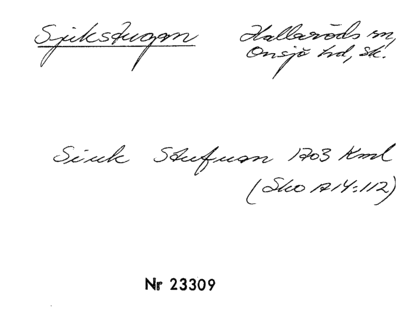 Sjukstugan Hallaröds sn,
Onsjö hd, Sk.
Siuk Stufuan 1703 Kml
(Sko A14:112)
Nr 23309